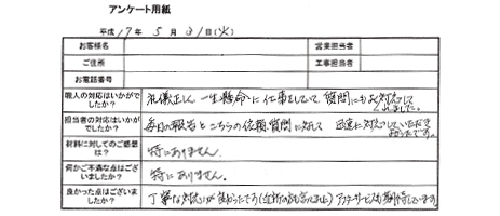 アンケート用紙
平成 17年 5月 31日(火)
お客様名
営業担当者
ご住所
工事担当者
お電話番号
職人の対応はいかがでしたか？
礼儀正しく 一生懸命に仕事をしていて、質問にもよく対応してくれました。
担当者の対応はいかがでしたか？
毎日の報告とこちらの依頼、質問に対して 迅速に対応していただきよかったです。
材料に対してのご感想は？
特にありません。
何かご不満な点はございましたか？
特にありません。
良かった点はございましたか？
丁寧な対応いが良かったです アフターサービスも期待しています。